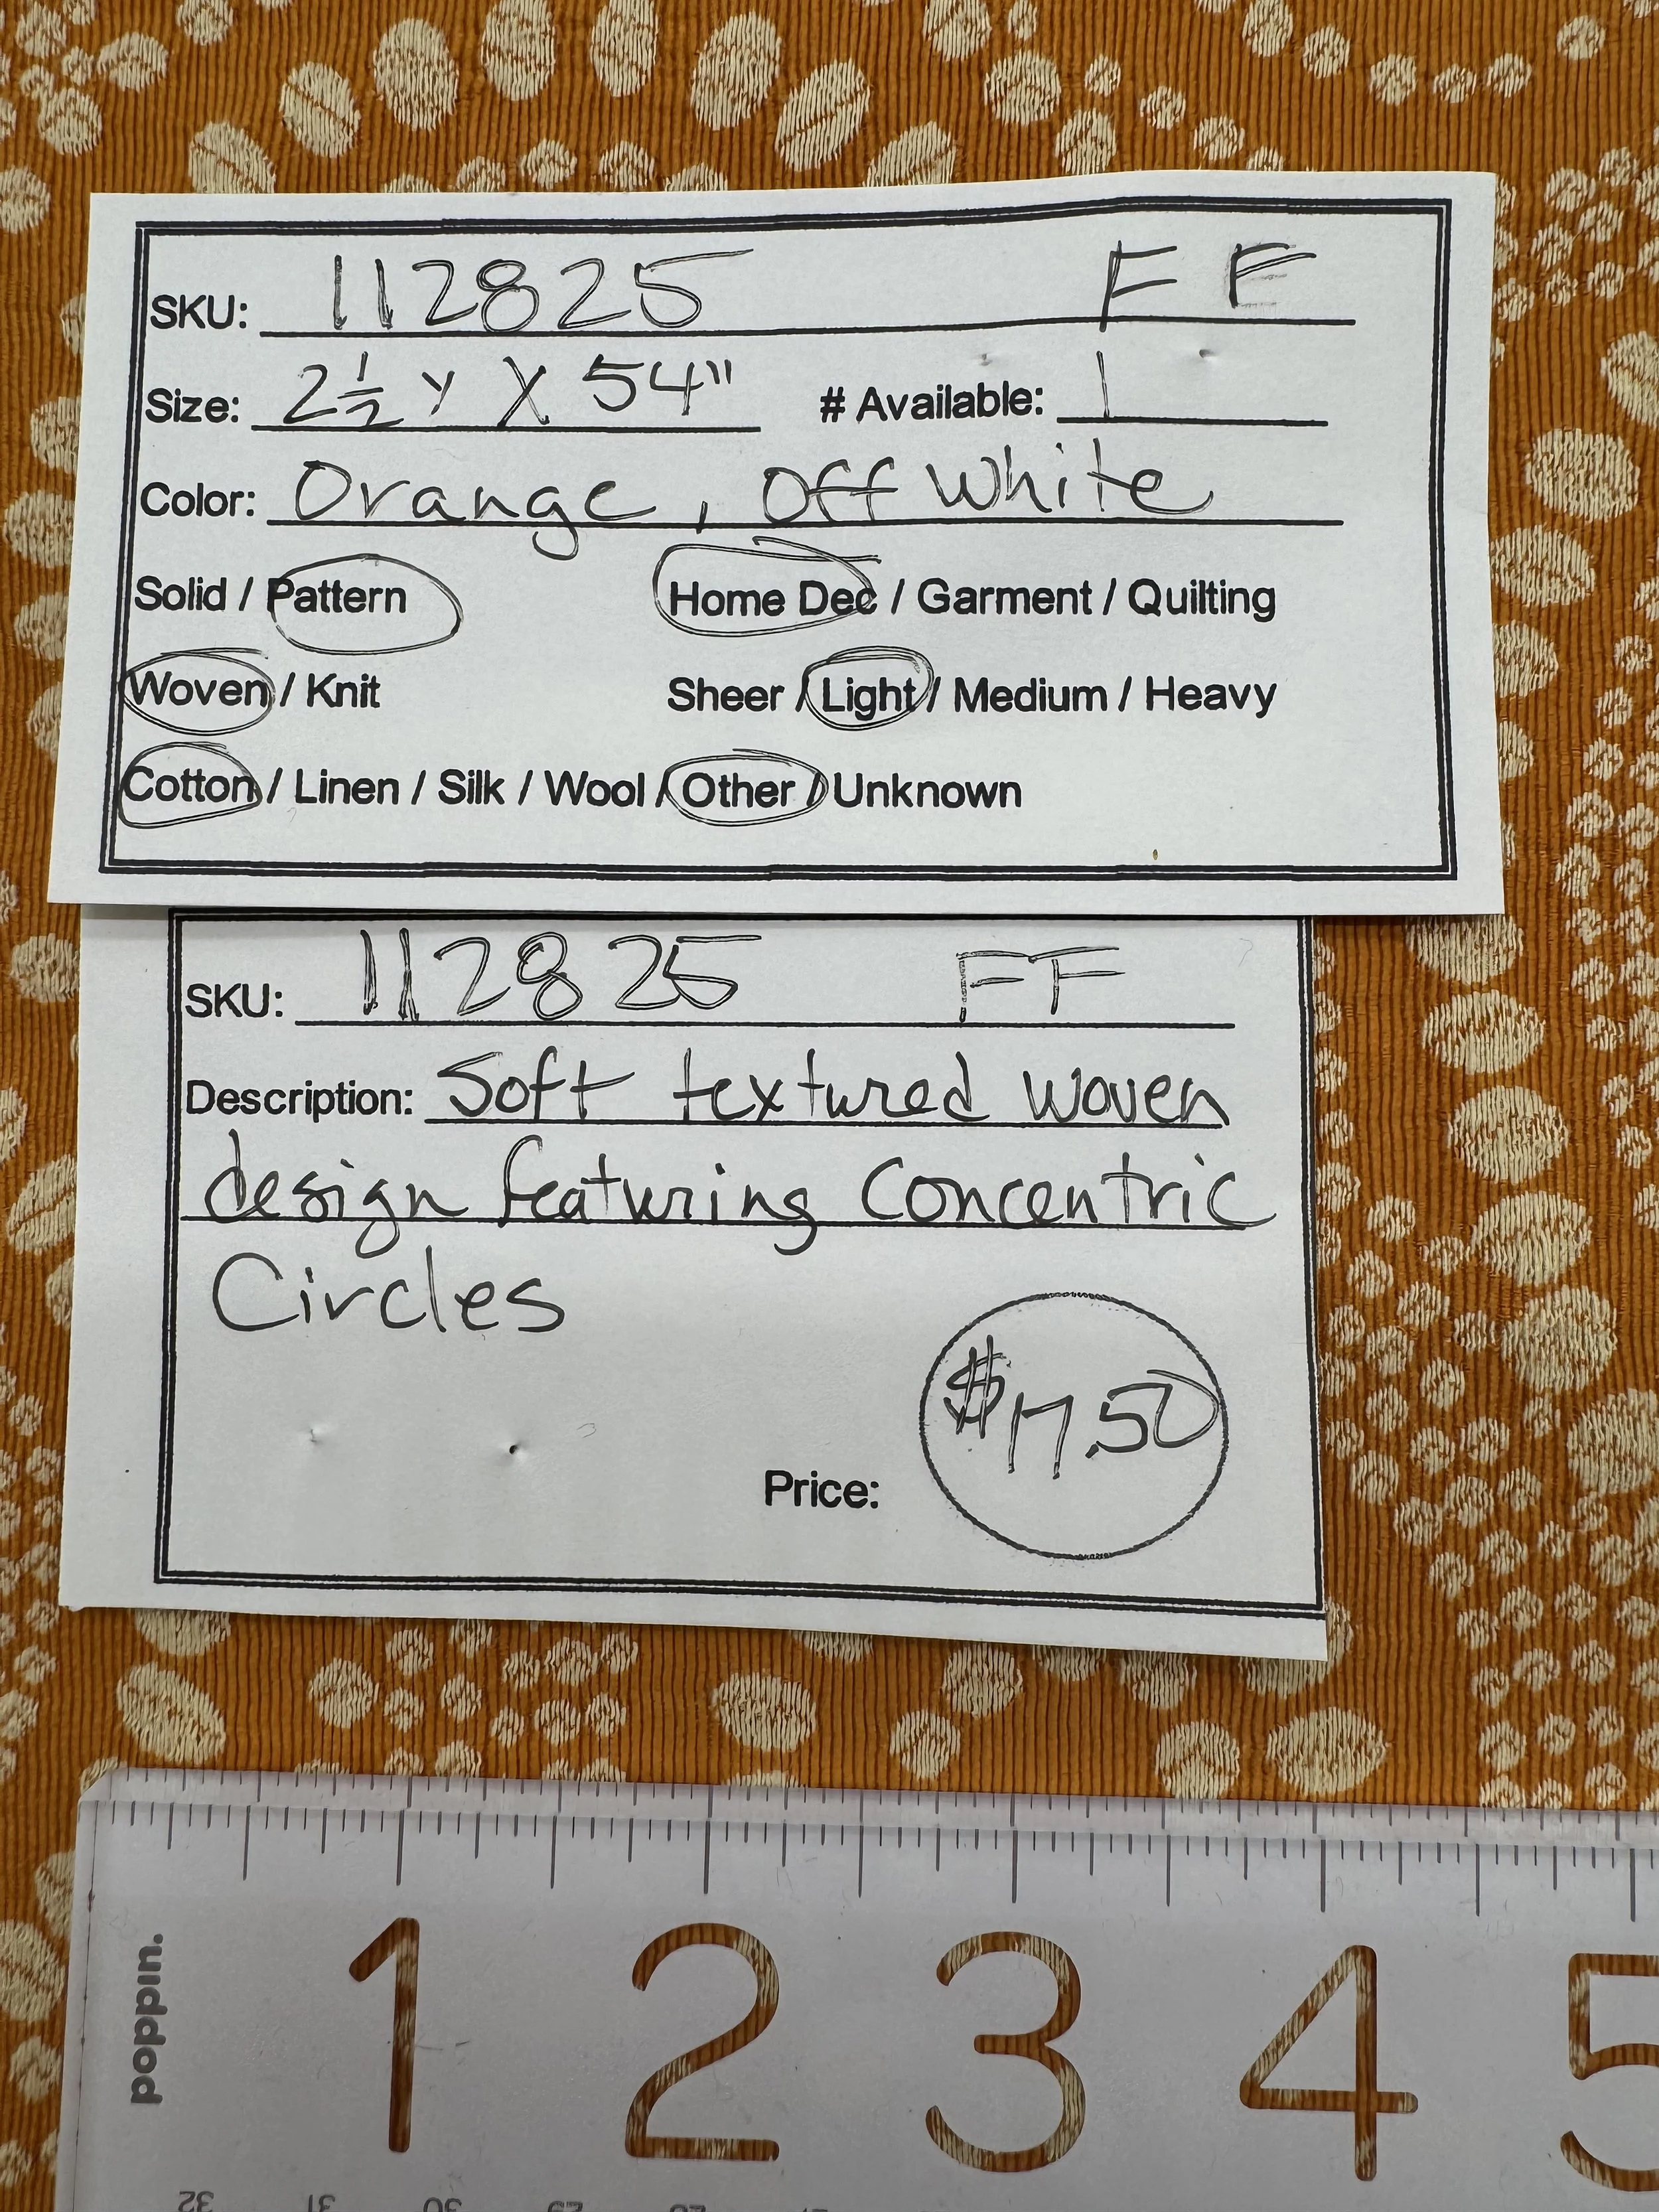 SKU: 112825 FF
Size: 2 1/2 y X 54" # Available: 1
Color: Orange, Off White
Solid / Pattern Home Dec / Garment / Quilting
Woven / Knit Sheer / Light / Medium / Heavy
Cotton / Linen / Silk / Wool / Other / Unknown
SKU: 112825 FF
Description: Soft textured woven
design featuring Concentric
Circles
$17.50
Price:
poppin.
1 2 3 4 5
32 31 30 29 28